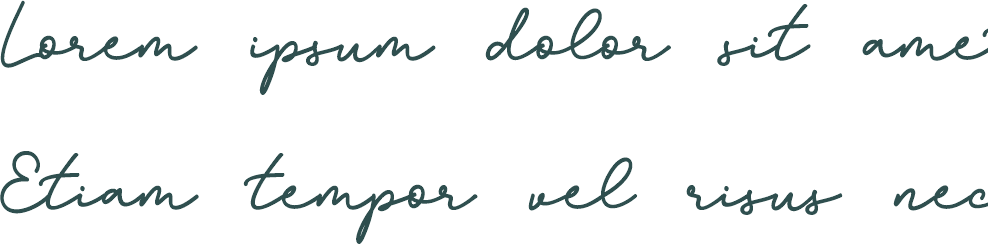 Lorem ipsum dolor sit ame
Etiam tempor vel risus nec